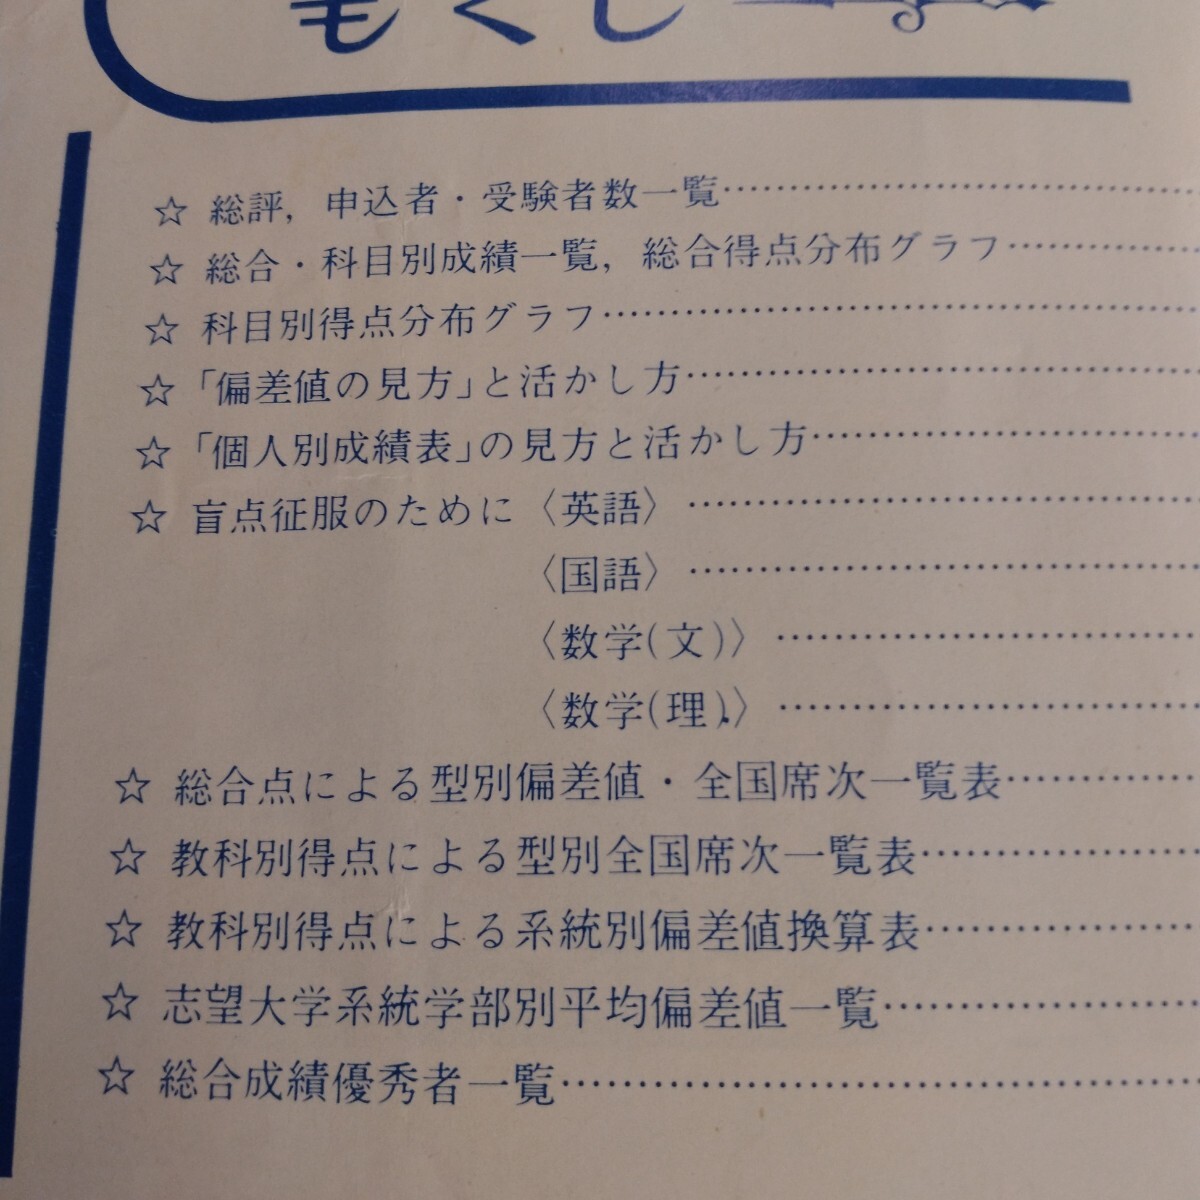 もくじ
☆ 総評，申込者・受験者数一覧
☆ 総合・科目別成績一覧，総合得点分布グラフ
☆ 科目別得点分布グラフ
☆「偏差値の見方」と活かし方
☆「個人別成績表」の見方と活かし方
☆ 盲点征服のために〈英語〉
〈国語〉
〈数学(文)〉
〈数学(理)〉
☆ 総合点による型別偏差値・全国席次一覧表
☆ 教科別得点による型別全国席次一覧表
☆ 教科別得点による系統別偏差値換算表
☆ 志望大学系統学部別平均偏差値一覧
☆ 総合成績優秀者一覧